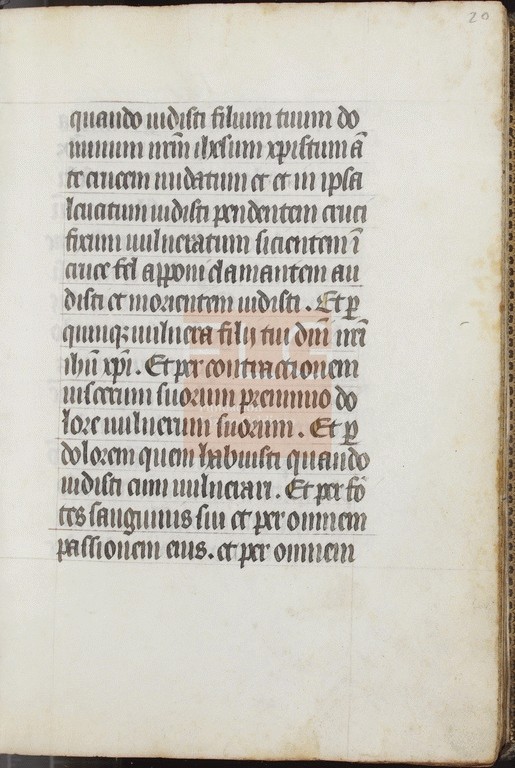 20
quando uidisti filium tuum do
minum nr̄m ihesum xp̄istum ā
te crucem nudatum et et in ipsa
leuatum uidisti pendentem cruci
fixum uulneratum sicientem ī
cruce fel apponi clamantem au
disti et morientem uidisti . Et ꝑ
quinqꝫ uulnera filij tui dn̄i nr̄i
ihū xp̄i . Et per contractionem
uiscerum suorum pre nimio do
lore uulnerum suorum . Et ꝑ
dolorem quem habuisti quando
uidisti eum uulnerari . Et per fō
tes sanguinis sui et per omnem
passionem eius . et per omnem